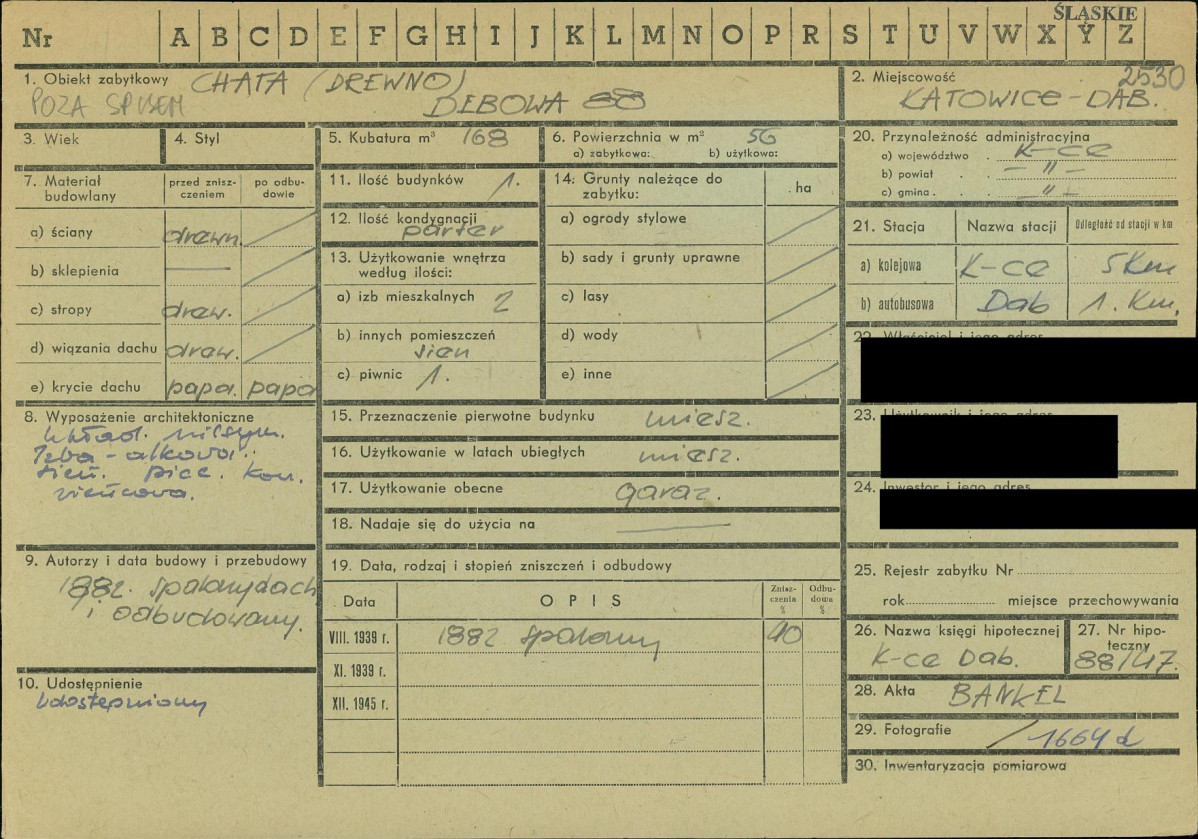 ŚLĄSKIE
Nr A B C D E F G H I J K L M N O P R S T U V W X Y Z
1. Obiekt zabytkowy CHATA (DREWNO)
POZA SPISEM DEBOWA 88
2. Miejscowość 2530
KATOWICE-DAB.
3. Wiek
4. Styl
5. Kubatura m³ 168
6. Powierzchnia w m² 56
a) zabytkowa: b) użytkowa:
7. Materiał budowlany
przed znisz-
czeniem
po odbu-
dowie
a) ściany drewn.
b) sklepienia —
c) stropy drew.
d) wiązania dachu drew.
e) krycie dachu papa. papa
8. Wyposażenie architektoniczne
Układ.
Izba - alkowa.
sień. piec. kon.
wieńcowa.
9. Autorzy i data budowy i przebudowy
1882. spalony dach
i odbudowany.
10. Udostępnienie
Udostępniony
11. Ilość budynków 1.
12. Ilość kondygnacji
parter
13. Użytkowanie wnętrza
według ilości:
a) izb mieszkalnych 2
b) innych pomieszczeń
sien
c) piwnic 1.
14. Grunty należące do
zabytku: . ha
a) ogrody stylowe
b) sady i grunty uprawne
c) lasy
d) wody
e) inne
15. Przeznaczenie pierwotne budynku miesz.
16. Użytkowanie w latach ubiegłych miesz.
17. Użytkowanie obecne garaż.
18. Nadaje się do użycia na —
19. Data, rodzaj i stopień zniszczeń i odbudowy
Data OPIS
Znisz-
czenia
%
Odbu-
dowa
%
VIII. 1939 r. 1882 spalony 90
XI. 1939 r.
XII. 1945 r.
20. Przynależność administracyjna
a) województwo . K-ce
b) powiat . . — " —
c) gmina . . — " —
21. Stacja Nazwa stacji Odległość od stacji w km
a) kolejowa K-ce 5 Km
b) autobusowa Dab 1. Km.
22. Właściciel i jego adres
23. Użytkownik i jego adres
24. Inwestor i jego adres
25. Rejestr zabytku Nr
rok miejsce przechowywania
26. Nazwa księgi hipotecznej
K-ce Dab.
27. Nr hipo-
teczny
88/47.
28. Akta BANKEL
29. Fotografie / 1664 d
30. Inwentaryzacja pomiarowa